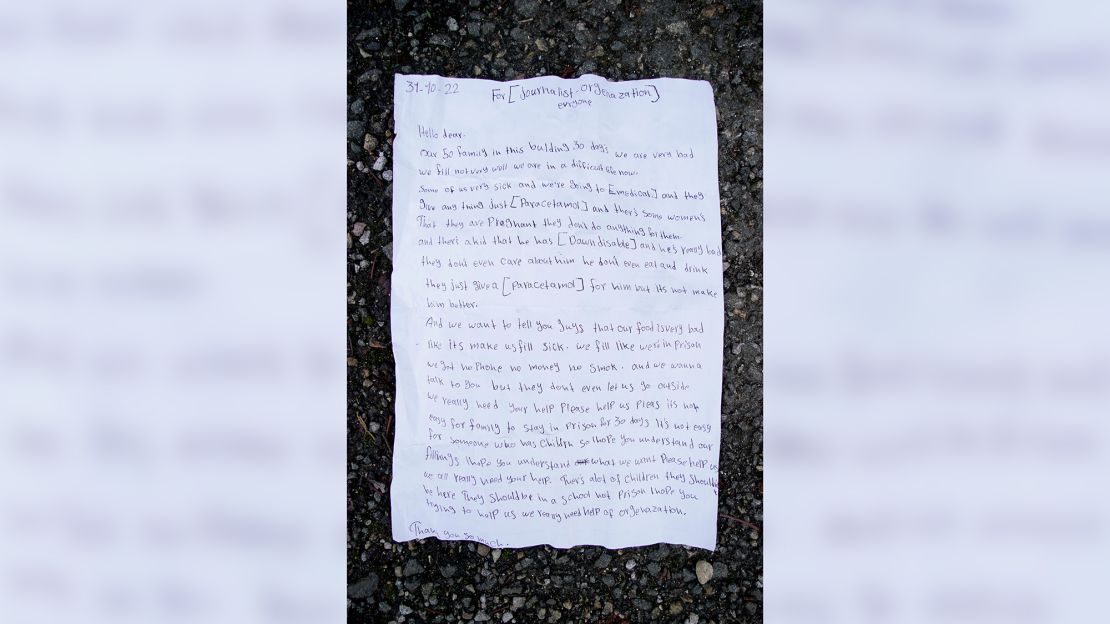 31-10-22 For [journalist - orgenazation]
evryone
Hello dear.
our 50 family in this bulding 30 days we are very bad
we fill not very well we are in a difficult life now.
some of us very sick and we're going to [medical] and they
give any thing just [Paracetamol] and there's some women's
That they are Pregnant they don't do anything for them
and ther's a kid that he has [Down disable] and he's really bad
they don't even care about him he don't even eat and drink
they just give a [paracetamol] for him but its not make
him better.
And we want to tell you guys that our food is very bad
like its make us fill sick. we fill like we're in Prison
we got no Phone no money no smok. and we wanna
talk to you but they dont even let us go outside
we really need your help Please help us Pleas its not
easy for family to stay in Prison for 30 days It's not easy
for someone who has children so I hope you understand our
fillings I hope you understand what we want Please help us
we all really need your help. Ther's alot of children they should
be here They should be in a school not Prison I hope you
trying to help us we really need help of orgenazation.
Thank you so much.